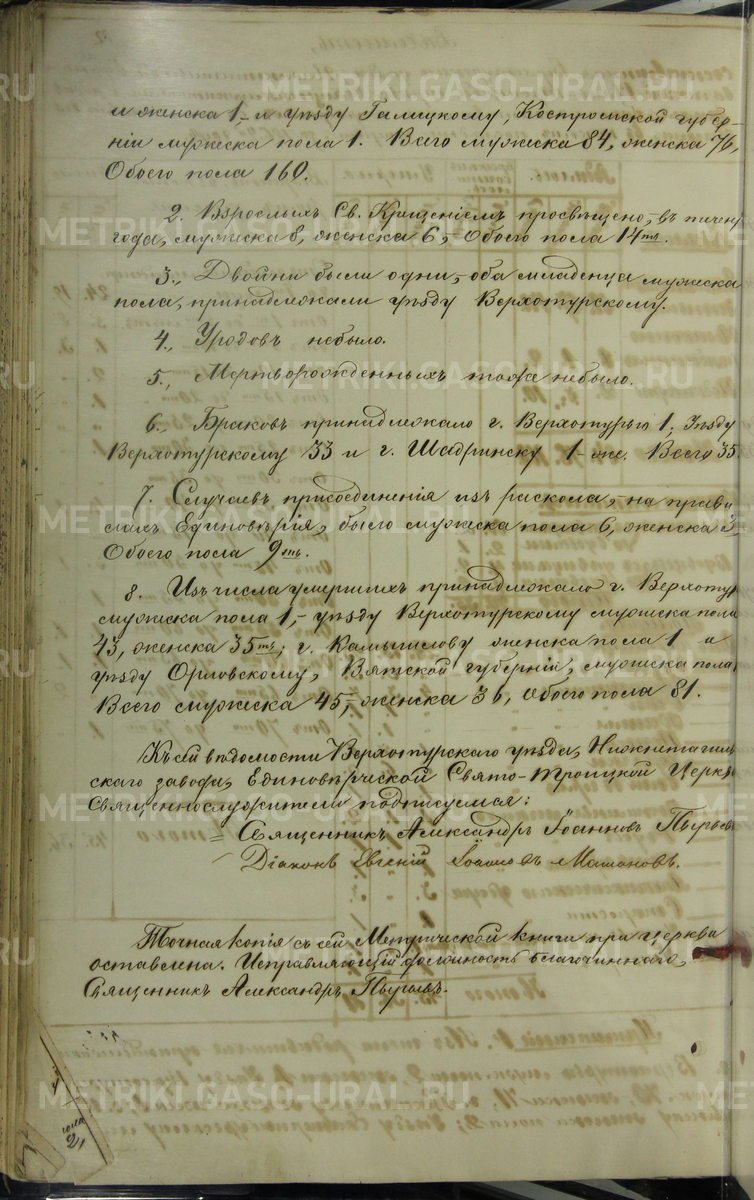 и женска 1,- и уѣзду Галицкому, Костромской губер-
ніи мужеска пола 1. Всего мужеска 84, женска 76,
Обоего пола 160.
2. Взрослыхъ Св. Крещеніемъ просвѣщено,- въ течен.
года, мужеска 8, женска 6,- Обоего пола 14ть.
3., Двойни были одни,- оба младенца мужеска
пола, принадлежали уѣзду Верхотурскому.
4., Уродовъ небыло.
5., Мертворожденныхъ тоже небыло.
6., Браковъ принадлежало г. Верхотурью 1, Уѣзду
Верхотурскому 33 и г. Шадринску 1-же. Всего 35
7. Случаевъ присоединенія изъ раскола,- на прави-
лахъ Единовѣрія, было мужеска пола 6, женска 3,
Обоего пола 9ть.
8. Изъ числа умершихъ принадлежало г. Верхотур
мужеска пола 1,- уѣзду Верхотурскому мужеска пола
43, женска 35ть; г. Камышлову женска пола 1 и
уѣзду Орловскому, Вятской губерніи, мужеска пола
Всего мужеска 45,- женска 36, обоего пола 81.
Къ сей вѣдомости Верхотурскаго уѣзда, Нижнетагиль
скаго завода, Единовѣрческой Свято-Троицкой Церкв
Священнослужители подписуемся:
Священникъ Александръ Іоанновъ Пырьевъ
Діаконъ Евгеній Іоанновъ
Точная копія съ сей Метрической книги при церкви
оставлена. Исправляющій должность благочиннаго,
Священникъ Александръ Пырьевъ.
пола
2,
METRIKI.GASO-URAL.RU